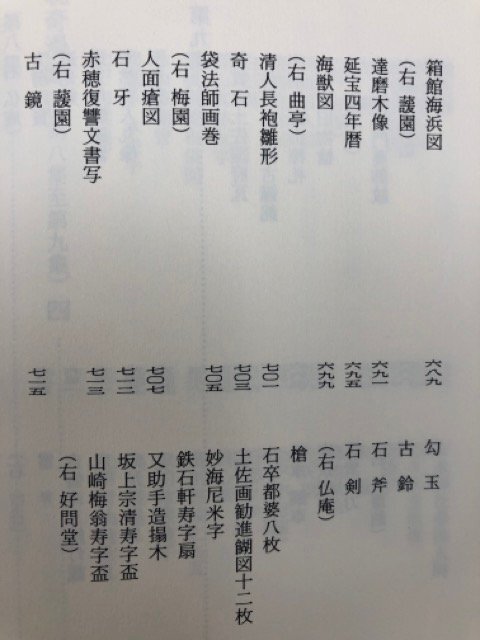 箱館海浜図 六八九
(右 蘐園)
達磨木像 六九一
延宝四年暦 六九五
海獣図 六九九
(右 曲亭)
清人長袍雛形 七〇一
奇石 七〇三
袋法師画巻 七〇五
(右 梅園)
人面瘡図 七〇七
石牙 七一二
赤穂復讐文書写 七一三
(右 蘐園)
古鏡 七一五
勾玉
古鈴
石斧
石剣
(右 仏庵)
槍
石卒都婆八枚
土佐画勧進餬図十二枚
妙海尼米字
鉄石軒寿字扇
又助手造搨木
坂上宗清寿字盃
山崎梅翁寿字盃
(右 好問堂)